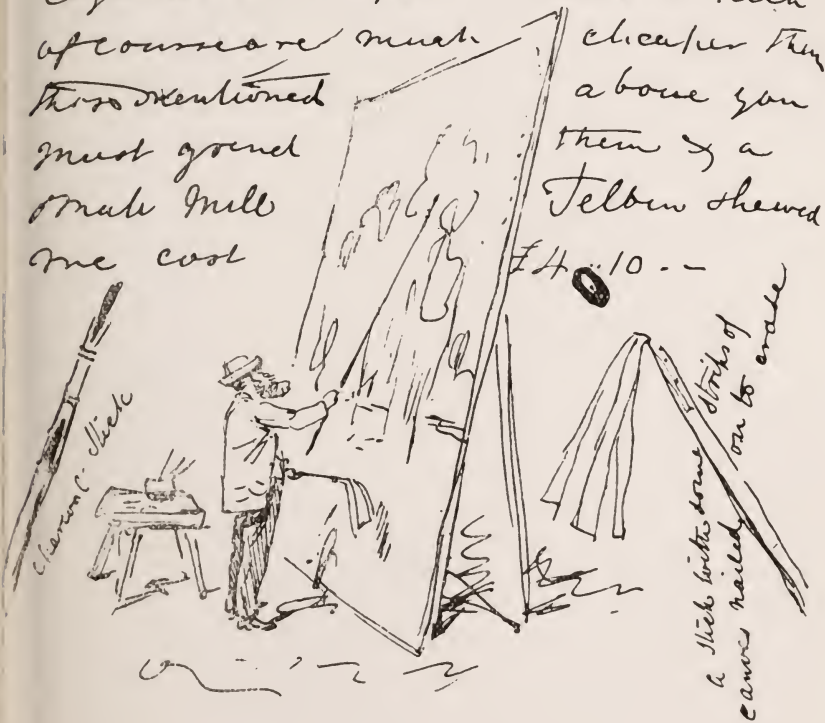 of course are much cheaper than
those mentioned above you
must grind them & a
small Mill Telbin shewed
me cost £4..10.-
Charcoal Stick
a Stick with some strips of
canvas nailed on to erase